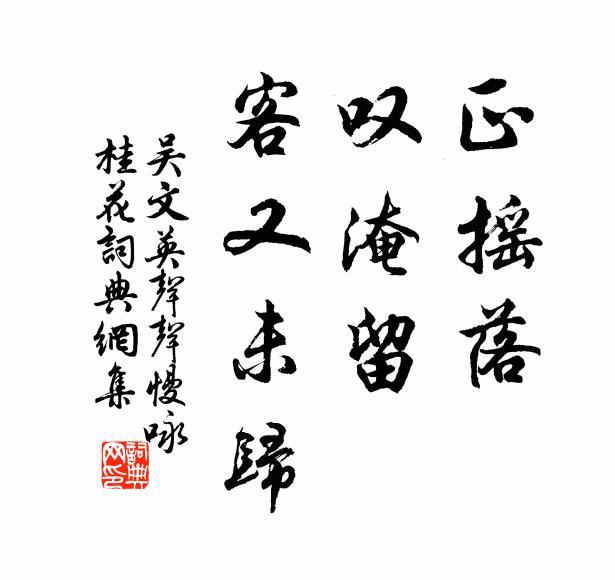 正摇落
叹淹留
客又未歸
吴文英聲聲慢咏
桂花詞典網集
詞典网印